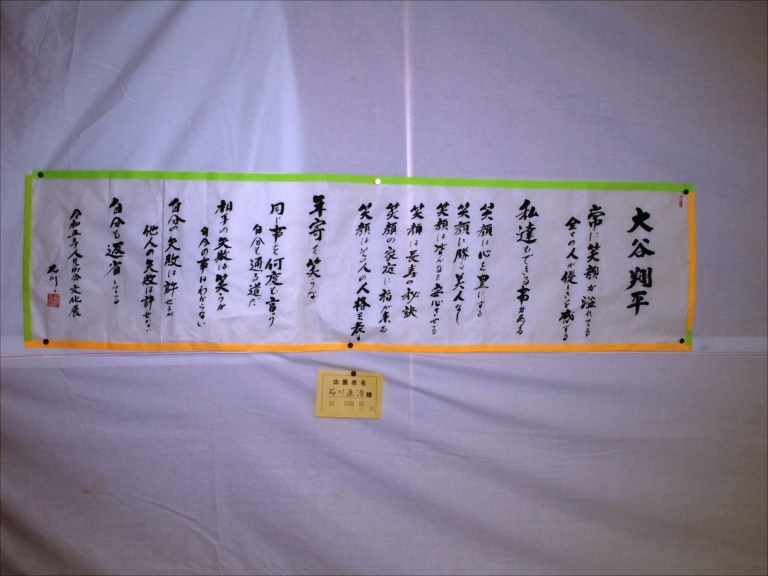 大谷翔平
常に笑顔が溢れてる
全ての人が優しさを感ずる
私達もできる事がある
笑顔は心を豊にする
笑顔に勝る美人なし
笑顔は皆んなを安心させる
笑顔は長寿の秘訣
笑顔の家庭に福が来る
笑顔はその人の人格を表す
年寄を笑うな
同じ事を何度も言う
自分も通る道だ
相手の失敗は笑うが
自分の事はわからない
自分の失敗は許せるが
他人の失敗は許せない
自分も返省している
令和五年 文化展
石川
出展者名
石川 様